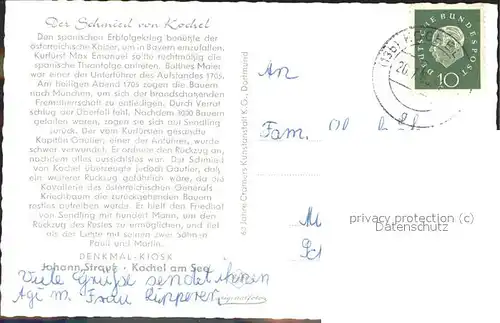 Der Schmied von Kochel
Den spanischen Erbfolgekrieg benützte der
österreichische Kaiser, um in Bayern einzufallen.
Kurfürst Max Emanuel sollte rechtmäßig die
spanische Thronfolge antreten. Balthes Maier
war einer der Unterführer des Aufstandes 1705.
Am heiligen Abend 1705 zogen die Bauern
nach München, um sich der brandschatzenden
Fremdherrschaft zu entledigen. Durch Verrat
schlug der Überfall fehl. Nachdem 3000 Bauern
gefallen waren, zogen sie sich auf Sendling
zurück. Der vom Kurfürsten gesandte
Kapitän Gautier, einer der Anführer, wurde
schwer verwundet. Er ordnete den Rückzug an,
nachdem alles aussichtslos war. Der Schmied
von Kochel überzeugte jedoch Gautier, daß
ein weiterer Rückzug gefährlich wäre, da die
Kavallerie des österreichischen Generals
Kriechbaum die zurückgehenden Bauern
restlos aufreiben werde. Er hielt den Friedhof
von Sendling mit hundert Mann, um den
Rückzug des Restes zu ermöglichen, und fiel
als der Letzte mit seinen zwei Söhnen
Paul und Martin.
DENKMAL-KIOSK
Johann Strauß · Kochel am See
Viele Grüße sendet ihnen
Frau Lipperer
60 Jahre Cramers Kunstanstalt K.G., Dortmund
An
Fam.
M
DEUTSCHE BUNDESPOST
10
(13b) KOCHEL
privacy protection (c)
Datenschutz